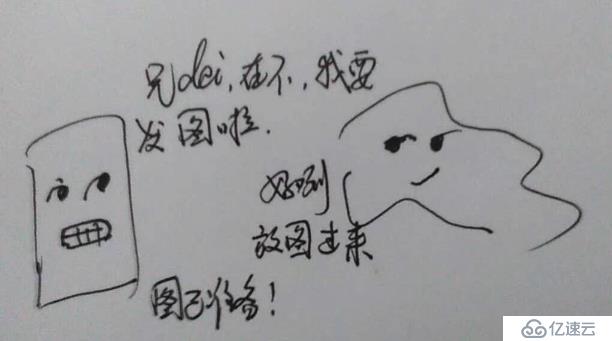 兄dei,在不,我要
发图啦.
好咧
放图过来
图已准备!
亿速云